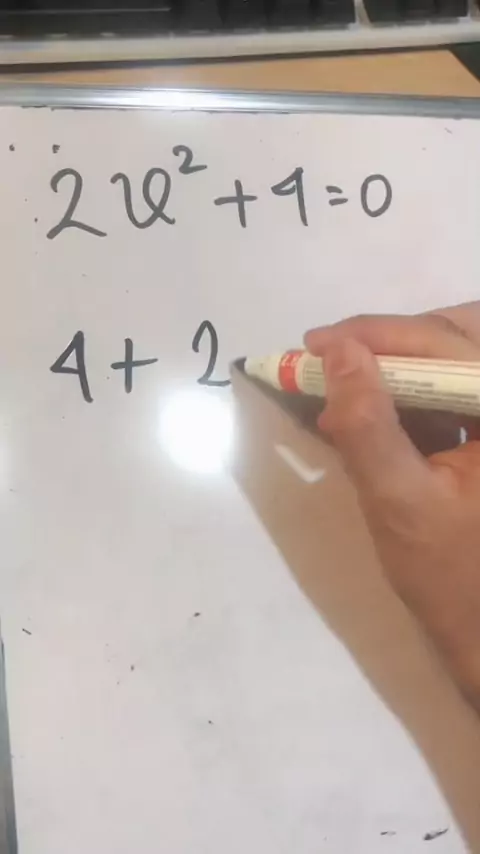 2ϑ² + 4 = 0
4 + 2